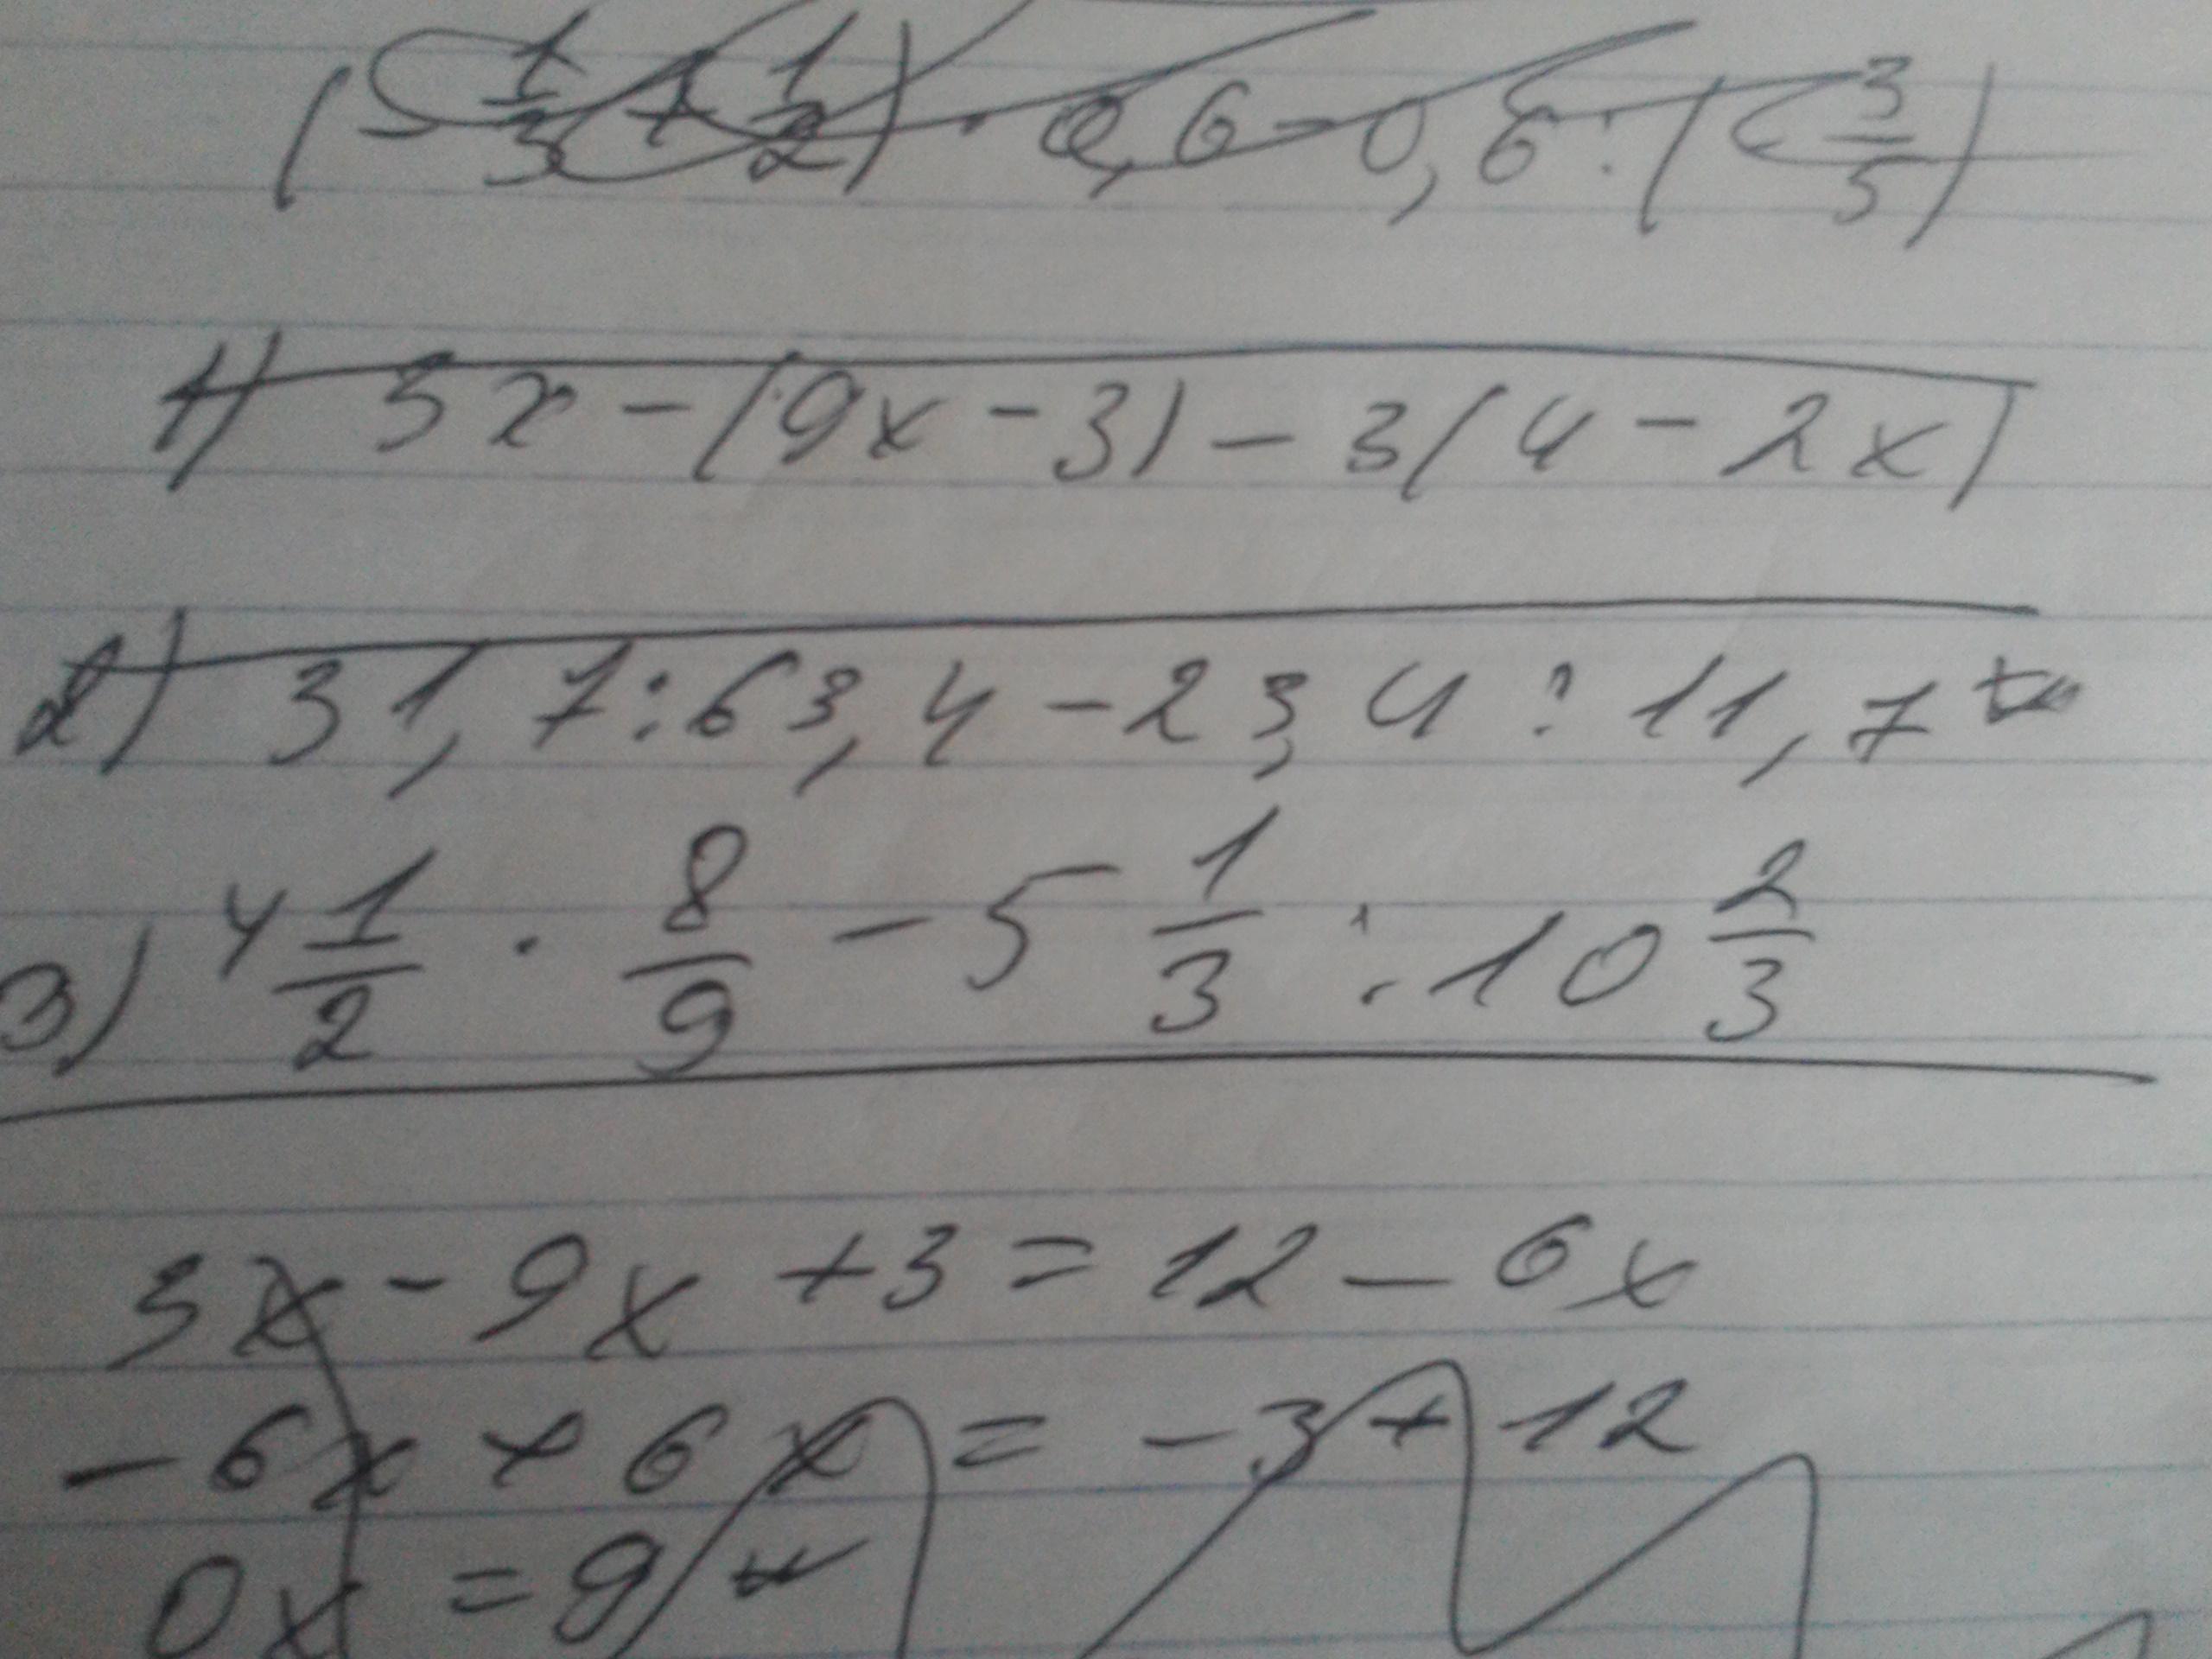 (-1/3 + 1/2) · 0,6 - 0,6 : (- 3/5)
1) 3x - (9x - 3) - 3(4 - 2x)
2) 31,7 : 63,4 - 23,4 : 11,7
3) 4 1/2 · 8/9 - 5 1/3 : 10 2/3
3x - 9x + 3 = 12 - 6x
- 6x + 6x = - 3 + 12
0x = 9